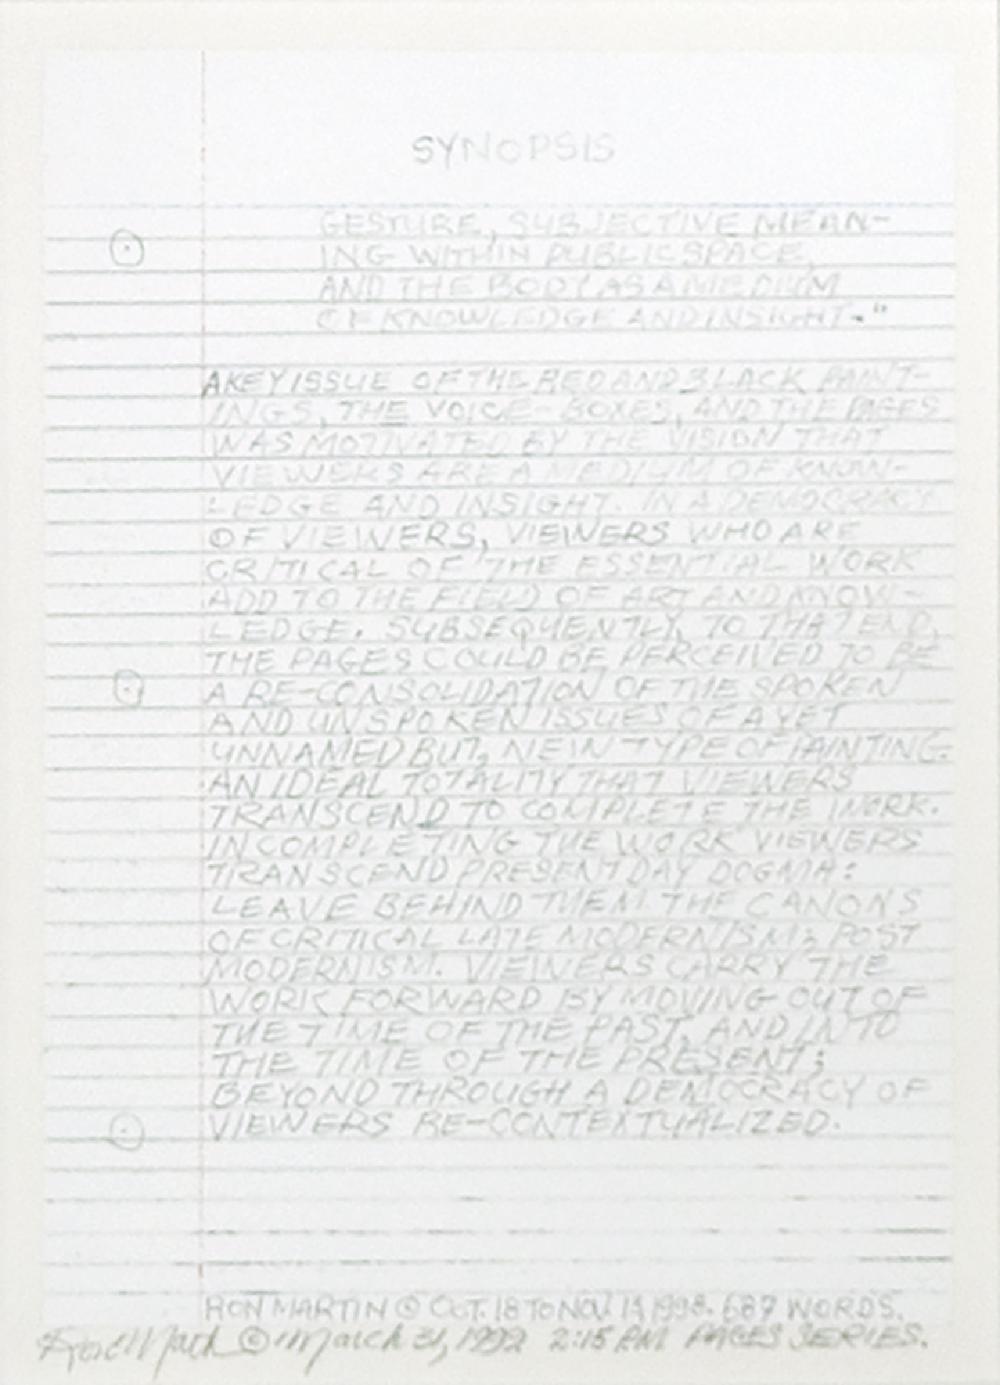 SYNOPSIS
GESTURE, SUBJECTIVE MEAN-
ING WITHIN PUBLIC SPACE,
AND THE BODY AS A MEDIUM
OF KNOWLEDGE AND INSIGHT."
A KEY ISSUE OF THE RED AND BLACK PAINT-
INGS, THE VOICE-BOXES, AND THE PAGES
WAS MOTIVATED BY THE VISION THAT
VIEWERS ARE A MEDIUM OF KNOW-
LEDGE AND INSIGHT. IN A DEMOCRACY
OF VIEWERS, VIEWERS WHO ARE
CRITICAL OF THE ESSENTIAL WORK
ADD TO THE FIELD OF ART AND KNOW-
LEDGE. SUBSEQUENTLY, TO THAT END,
THE PAGES COULD BE PERCEIVED TO BE
A RE-CONSOLIDATION OF THE SPOKEN
AND UNSPOKEN ISSUES OF A YET
UNNAMED BUT, NEW TYPE OF PAINTING.
AN IDEAL TOTALITY THAT VIEWERS
TRANSCEND TO COMPLETE THE WORK.
IN COMPLETING THE WORK VIEWERS
TRANSCEND PRESENT DAY DOGMA:
LEAVE BEHIND THEM THE CANONS
OF CRITICAL LATE MODERNISM; POST
MODERNISM. VIEWERS CARRY THE
WORK FORWARD BY MOVING OUT OF
THE TIME OF THE PAST, AND INTO
THE TIME OF THE PRESENT;
BEYOND THROUGH A DEMOCRACY OF
VIEWERS RE-CONTEXTUALIZED.
RON MARTIN © OCT. 18 TO NOV. 1998. 687 WORDS.
© March 31, 1999 2:15 PM PAGES SERIES.